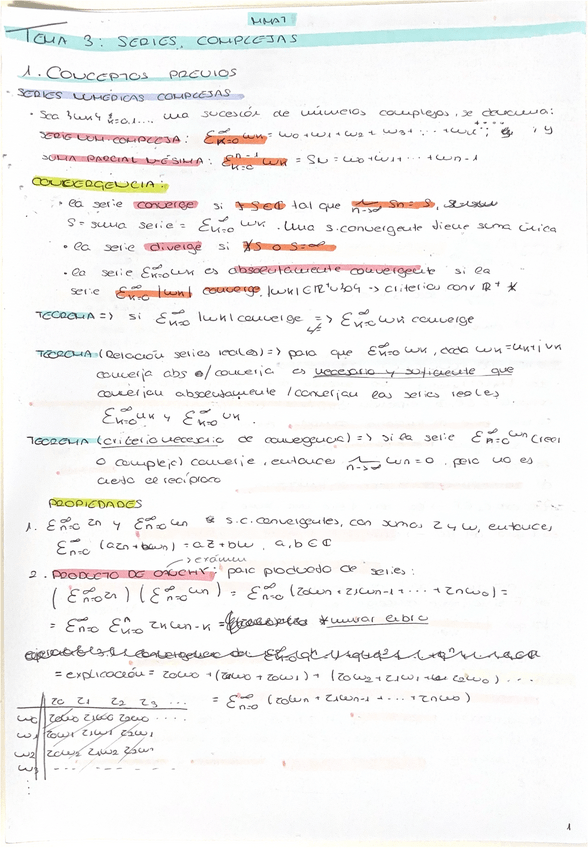 MMAT
TEMA 3: SERIES COMPLEJAS
1. CONCEPTOS PREVIOS
SERIES NUMÉRICAS COMPLEJAS
· Sea {wk}k=0,1.... una sucesión de números complejos, se denomina:
SERIE NUM. COMPLEJA: Σ∞k=0 wk = w0+w1+w2+w3+...+wk; y
SUMA PARCIAL NÉSIMA: Σn-1k=0 wk = Sn = w0+w1+...+wn-1
CONVERGENCIA:
· la serie converge si ∃ S∈ℂ tal que lim n->∞ Sn = S,
S = suma serie = Σ∞k=0 wk. Una s. convergente tiene suma única
· la serie diverge si ∄S o S=∞
· la serie Σ∞k=0 wk es absolutamente convergente si la
serie Σ∞k=0 |wk| converge, |wk|∈ℝ+∪{0} -> criterios conv ℝ+ *
TEOREMA => si Σ∞k=0 |wk| converge => Σ∞k=0 wk converge
TEOREMA (Relación series reales) => para que Σ∞k=0 wk, cada wk=uk+jvk
converja abs o/converja es necesario y suficiente que
converjan absolutamente/converjan las series reales
Σ∞k=0 uk y Σ∞k=0 vk.
TEOREMA (criterio necesario de convergencia) => si la serie Σ∞n=0 wn (real
o compleja) converje, entonces lim n->∞ wn=0, pero no es
cierto el recíproco
PROPIEDADES
1. Σ∞n=0 zn y Σ∞n=0 wn s.c. convergentes, con sumas z y w, entonces,
Σ∞n=0 (azn+bwn) = az+bw, a,b∈ℂ
-> examen
2. PRODUCTO DE CAUCHY: para producto de series:
(Σ∞n=0 zn)(Σ∞n=0 wn) = Σ∞n=0 (z0wn+z1wn-1+...+znw0) =
= Σ∞n=0 Σnk=0 zkwn-k = *mirar libro
= explicación = z0w0 + (z0w0+z0w1) + (z0w2+z1w1+z2w0)...
z0 z1 z2 z3 ... = Σ∞n=0 (z0wn+z1wn-1+...+znw0)
w0 z0w0 z1w0 z2w0 ....
w1 z0w1 z1w1 z2w1
w2 z0w2 z1w2 z2w2
w3 - - - - - -
1